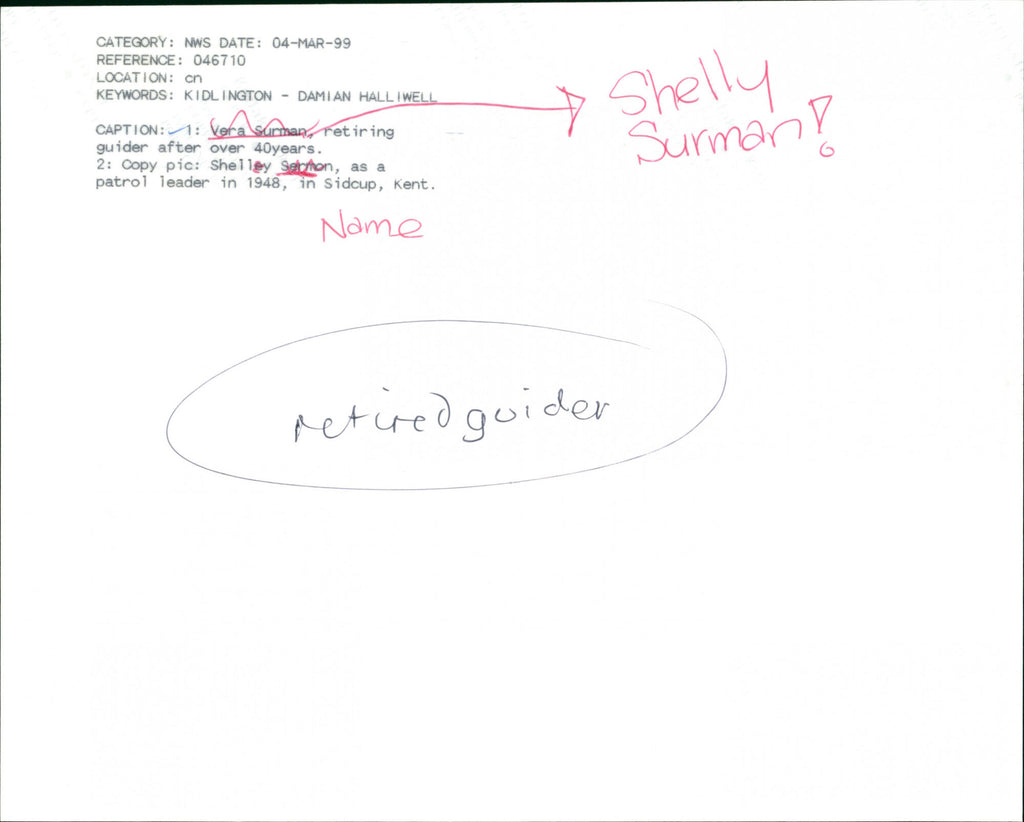 CATEGORY: NWS DATE: 04-MAR-99
REFERENCE: 046710
LOCATION: cn
KEYWORDS: KIDLINGTON - DAMIAN HALLIWELL
Shelly
Surman!
CAPTION: 1: Vera Surman, retiring
guider after over 40years.
2: Copy pic: Shelley Sermon, as a
patrol leader in 1948, in Sidcup, Kent.
Name
retired guider